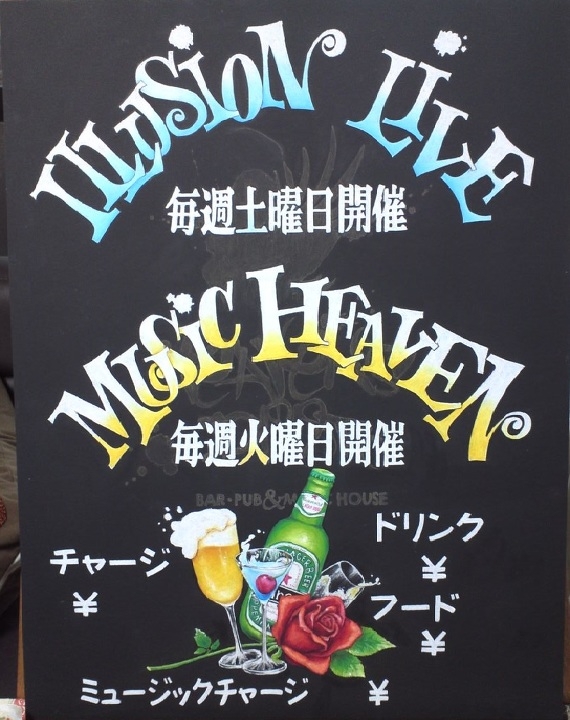 ILLUSION LIVE
毎週土曜日開催
MUSIC HEAVEN
毎週火曜日開催
BAR・PUB & MUSIC HOUSE
ドリンク
¥
チャージ
¥
フード
¥
ミュージックチャージ ¥